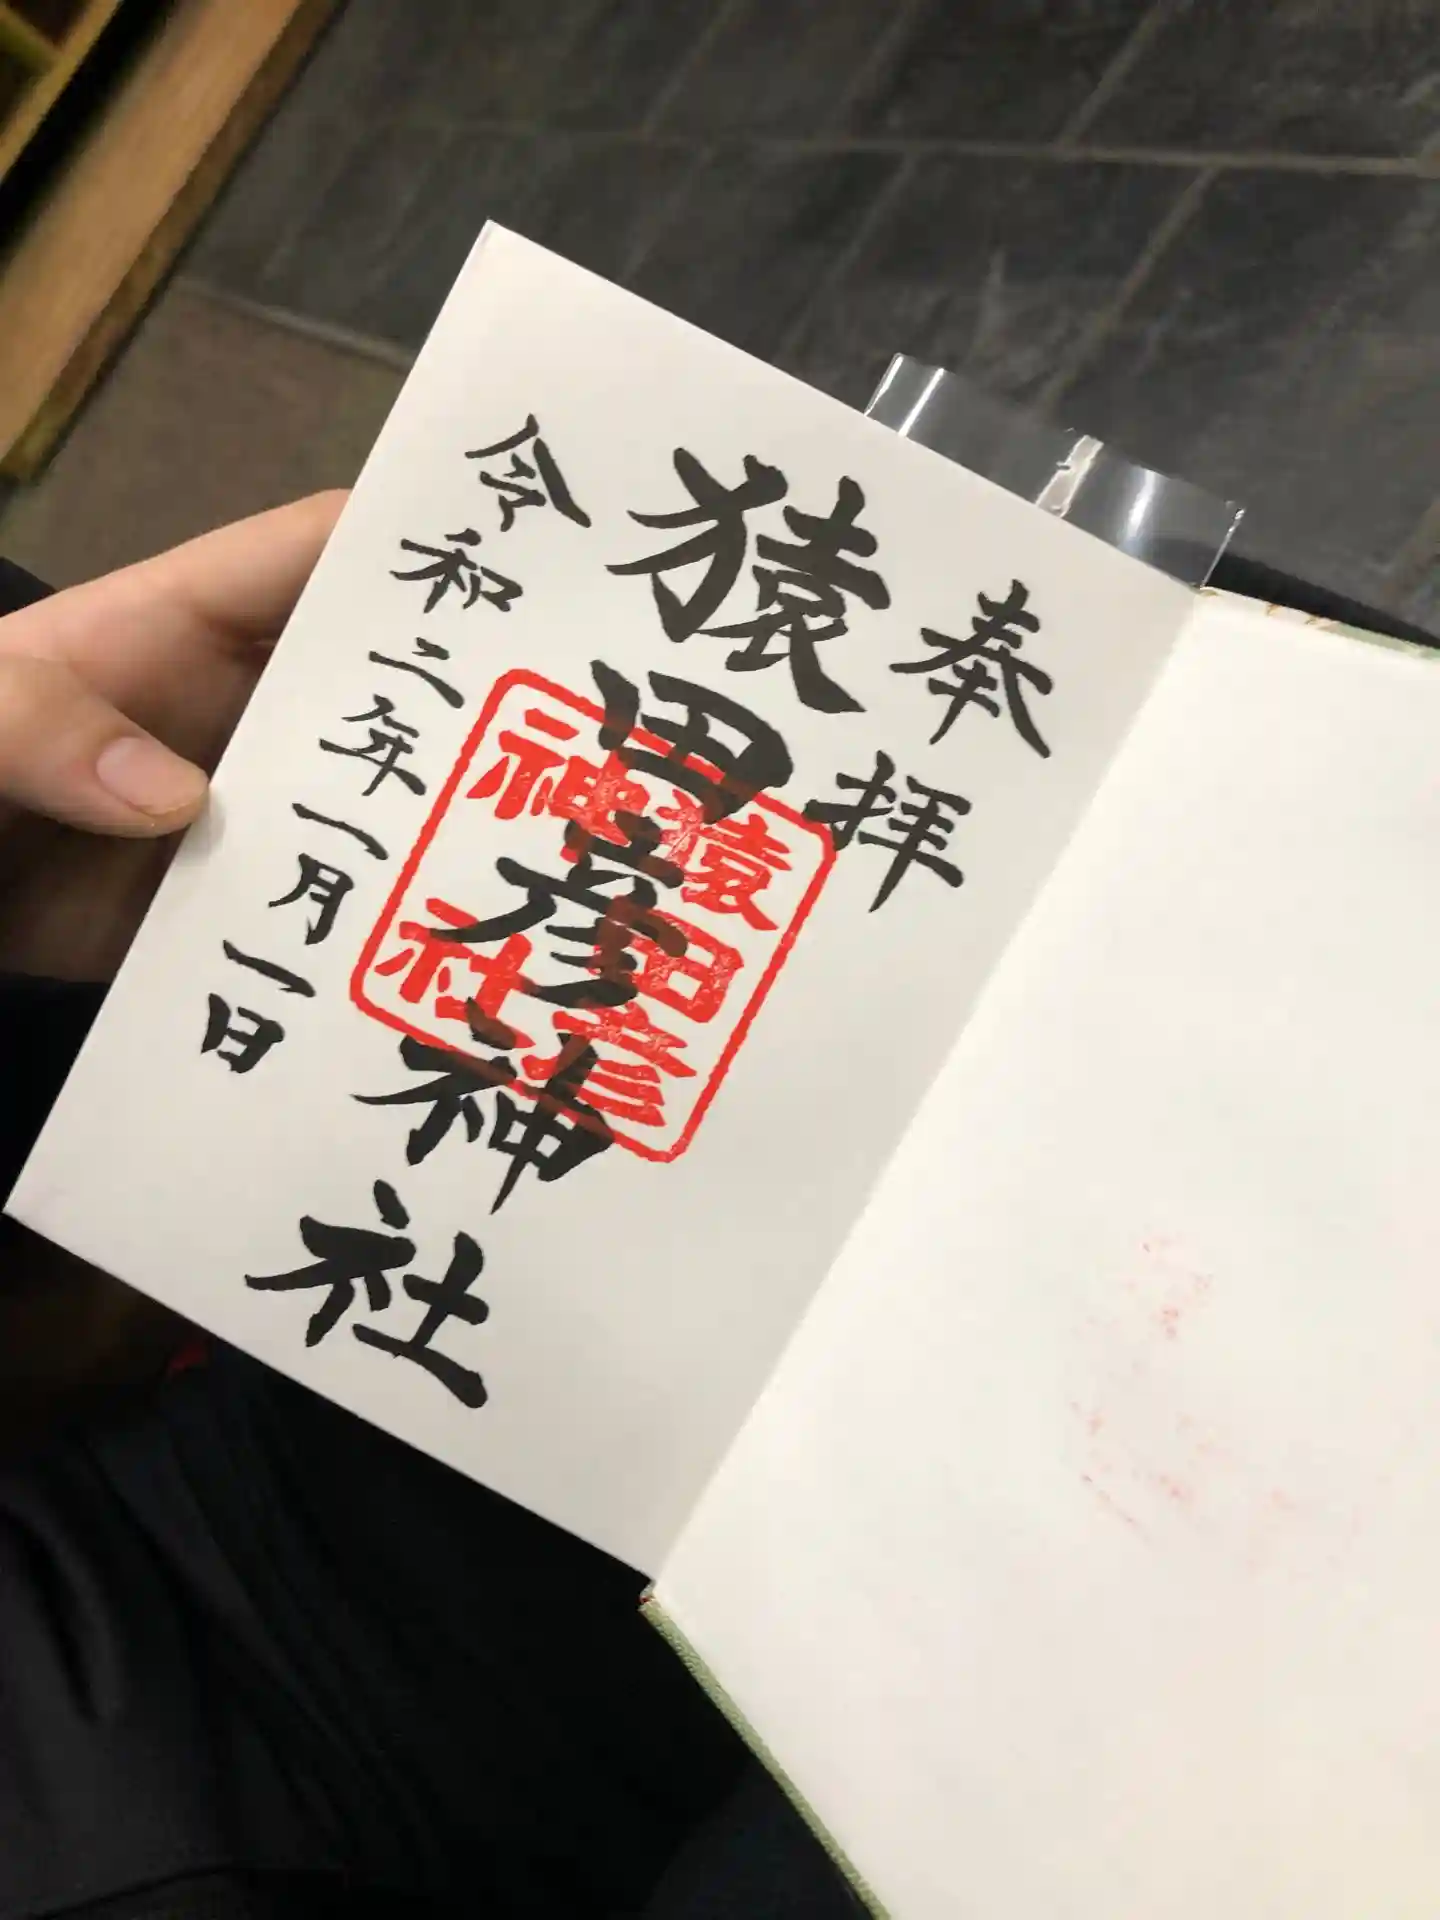 奉拝
猿田彦神社
猿田彦
神社
令和二年一月一日